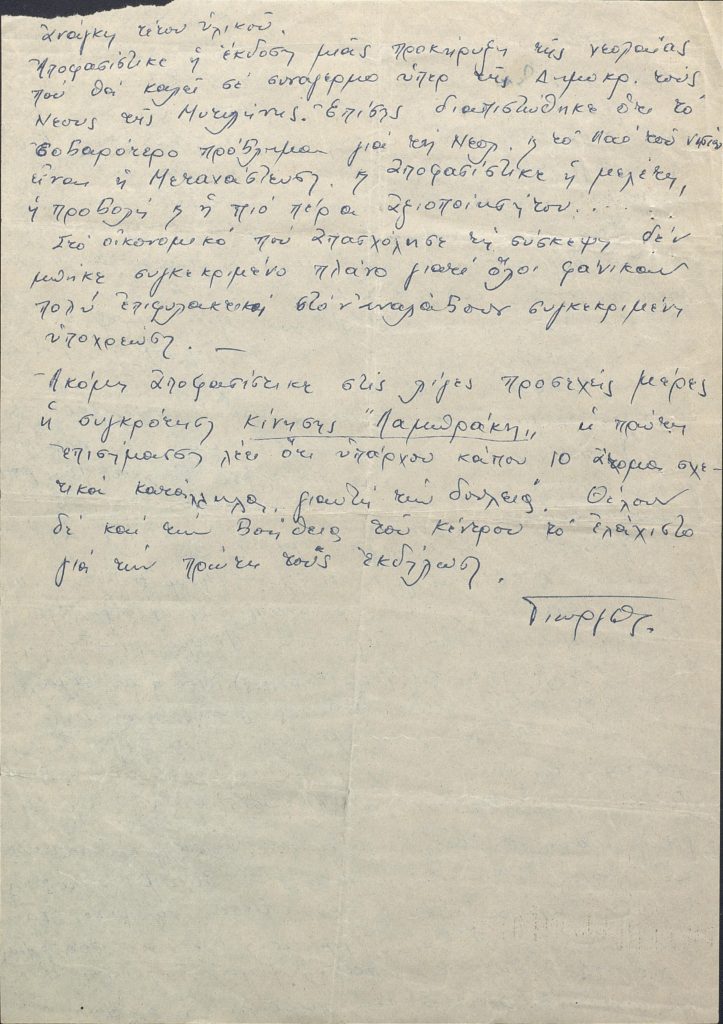 ἀνάγκη τέτου ὑλικοῦ.
Ἀποφασίστικε ἡ ἔκδοση μιᾶς προκήρυξη τῆς νεολαίας
πού θά καλεῖ σέ συναγερμο ὑπερ τῆς Δημοκρ. τούς
Νεους τῆς Μυτιλήνης. Ἐπίσης διαπιστώθηκε ὅτι τό
σοβαρότερο πρόβλημα γιά τή Νεολ. κ τό Λαό τοῦ Νησιοῦ
εἶναι ἡ Μετανάστευση. κ ἀποφασίστικε ἡ μελέτη,
ἡ προβολή κ ἡ πιό πέρα ἀξιοποίησή του.....
Στό οἰκονομικό πού ἀπασχόλησε τή σύσκεψη δέν
μπῆκε συγκεκριμένο πλάνο γιατί ὅλοι φάνικαν
πολύ ἐπιφυλακτικοί στό ν' ἀναλάβουν συγκεκριμένη
ὑποχρέωση. —
Ἀκόμη ἀποφασίστικε στίς λίγες προσεχῆς μέρες
ἡ συγκρότηση κίνησης "Λαμπράκη" ἡ πρώτη
ἐπισήμανση λέει ὅτι ὑπάρχουν κάπου 10 ἄτομα σχε-
τικά κατάλληλα, γιαυτή τήν δουλειά. Θέλουν
δέ καί τήν Βοήθεια τοῦ κέντρου τό ἐλάχιστο
γιά τήν πρώτη τούς ἐκδήλωση.